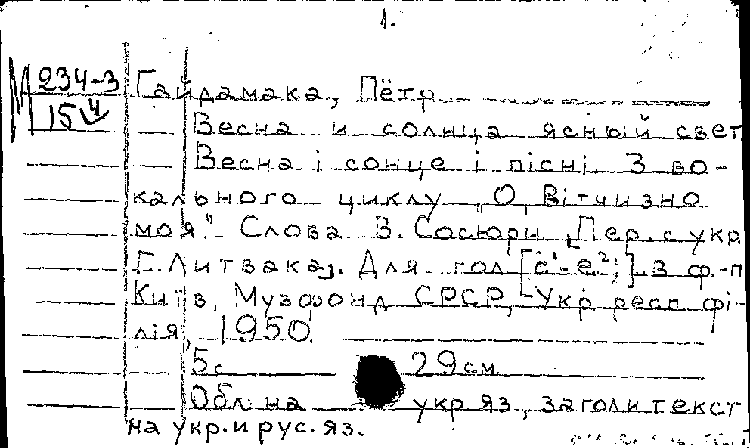 1.
М 234-3 Гайдамака, Пётр
15 4 Весна и солнца ясный свет
Весна і сонце і пісні. З во-
кального циклу „О, Вітчизно
моя". Слова В. Сосюри [Пер. с укр
Г. Литвака]. Для гол [c¹-e²;] з ф.-п
Київ, Музфонд СРСР, Укр респ фі-
лія, 1950.
5с 29см
Обл. на укр яз., загол и текст
на укр. и рус. яз.